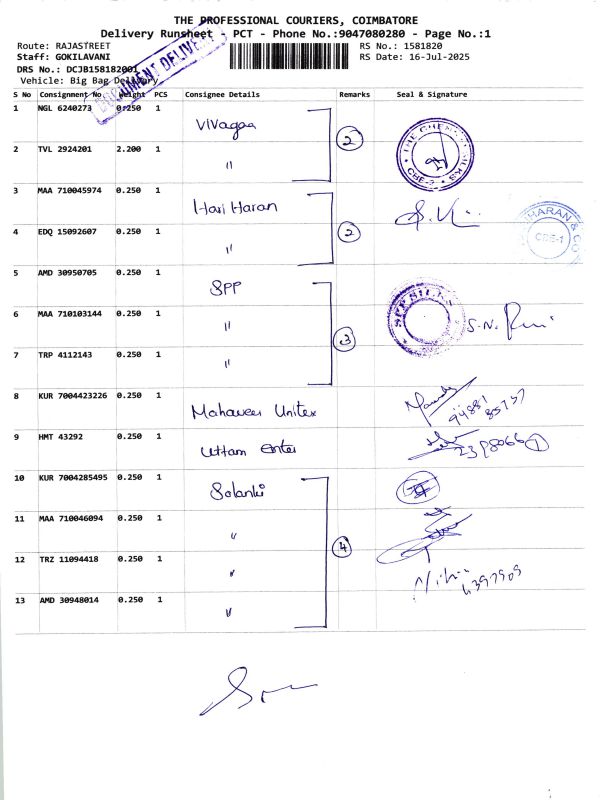 THE PROFESSIONAL COURIERS, COIMBATORE
Delivery Runsheet - PCT - Phone No.:9047080280 - Page No.:1
Route: RAJASTREET
RS No.: 1581820
Staff: GOKILAVANI
RS Date: 16-Jul-2025
DRS No.: DCJB158182001
Vehicle: Big Bag Delivery
DOCUMENT DELIVERY
S No Consignment No Weight PCS Consignee Details Remarks Seal & Signature
1 NGL 6240273 0.250 1 Vivagaa
2 TVL 2924201 2.200 1 " 2
THE CHENNAI SILKS CBE-
3 MAA 710045974 0.250 1 Hari Haran
4 EDQ 15092607 0.250 1 " 2
HARAN & CO CBE-1
5 AMD 30950705 0.250 1 SPP
6 MAA 710103144 0.250 1 " 3
SPP SILKS
S.N.
7 TRP 4112143 0.250 1 "
8 KUR 7004423226 0.250 1 Mahaveer Unitex
94881
85757
9 HMT 43292 0.250 1 Uttam Enter
2398066 1
10 KUR 7004285495 0.250 1 Solanki
11 MAA 710046094 0.250 1 " 4
12 TRZ 11094418 0.250 1 "
13 AMD 30948014 0.250 1 "